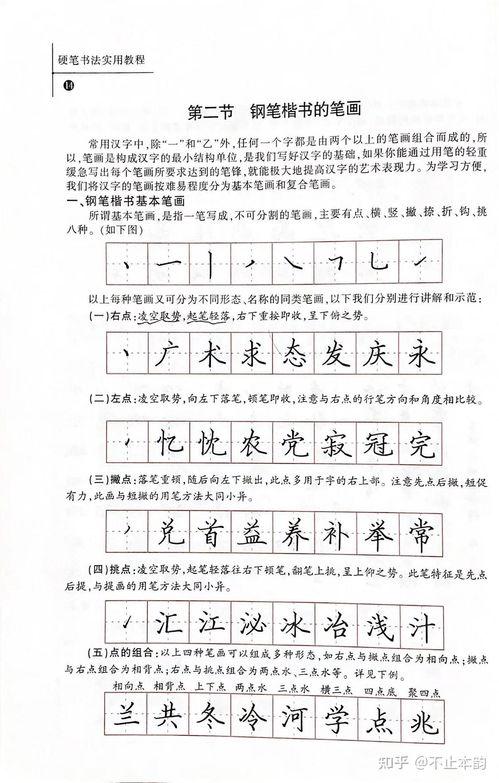 硬笔书法实用教程
14
第二节 钢笔楷书的笔画
常用汉字中,除“一”和“乙”外,任何一个字都是由两个以上的笔画组合而成的,所
以,笔画是构成汉字的最小结构单位,是我们写好汉字的基础,如果你能通过用笔的轻重
缓急写出每个笔画所要求达到的笔锋,就能极大地提高汉字的艺术表现力。为学习方便,
我们将汉字的笔画按难易程度分为基本笔画和复合笔画。
一、钢笔楷书基本笔画
所谓基本笔画,是指一笔写成,不可分割的笔画,主要有点、横、竖、撇、捺、折、钩、挑
八种。(如下图)
以上每种笔画又可分为不同形态、名称的同类笔画,以下我们分别进行讲解和示范:
(一)右点:凌空取势,起笔轻落,右下重按即收,呈下俯之势。
丶广术求态发庆永
(二)左点:凌空取势,向左下落笔,顿笔即收,注意与右点的行笔方向和角度相比较。
忆忱农党寂冠完
(三)撇点:落笔重顿,随后向左下撇出,此点多用于字的右上部。注意先点后撇,短促
有力,此画与短撇的用笔方法大同小异。
兑首益养补举常
(四)挑点:凌空取势,起笔轻落往右下顿笔,翻笔上挑,呈上仰之势。此笔特征是先点
后提,与提画的用笔方法大同小异。
汇江泌冰冶浅汁
(五)点的组合:以上四种笔画可以组成多种形态,如右点与撇点组合为相向点;撇点
与右点组合为相背点;右点与挑点组合为两点水、三点水等。详见下例。
相向点 相背点 上下点 两点水 三点水 横三点 四点底 聚四点
兰共冬冷河学点兆
知乎 @不止本韵